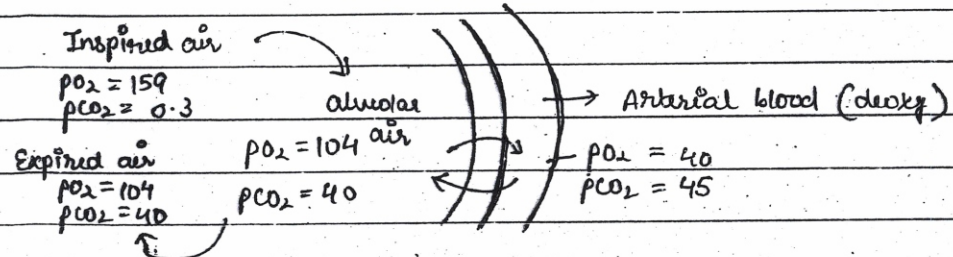 Inspired air
pO₂ = 159
pCO₂ = 0.3
alveolar air
pO₂ = 104
pCO₂ = 40
Expired air
pO₂ = 104
pCO₂ = 40
Arterial blood (deoxy)
pO₂ = 40
pCO₂ = 45